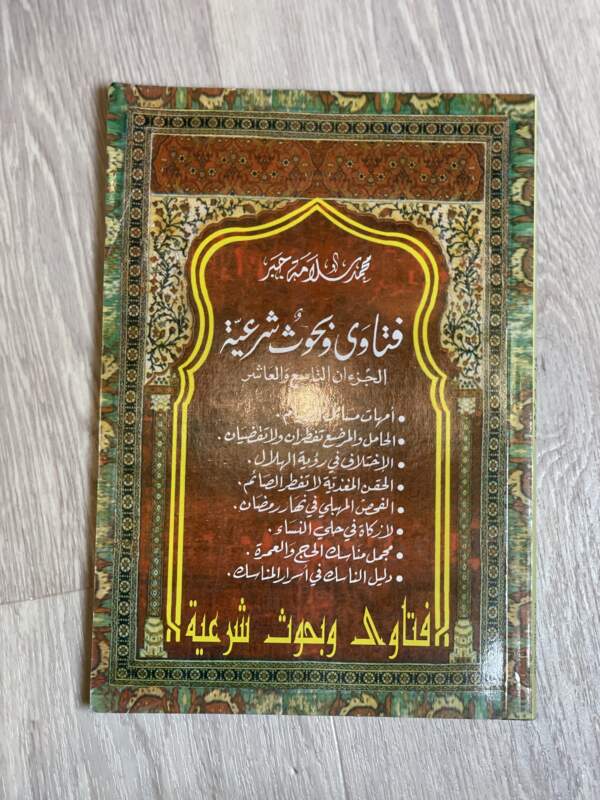 محمد سلامة جبر
فتاوى وبحوث شرعية
الجزءان التاسع والعاشر
• أمهات مسائل الصيام .
• الحامل والمرضع تفطران ولا تقضيان .
• الاختلاف في رؤية الهلال .
• الحقن المغذية لا تفطر الصائم .
• الفحص المهبلي في نهار رمضان .
• لا زكاة في حلي النساء .
• مجمل مناسك الحج والعمرة .
• دليل الناسك في أسرار المناسك .
فتاوى وبحوث شرعية